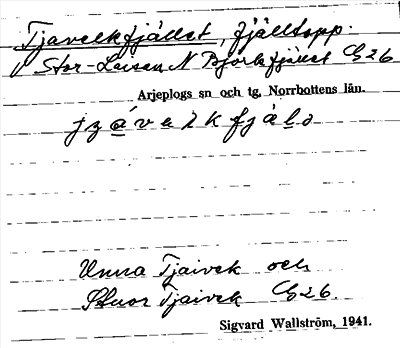 Tjavelkfjället, fjälltopp.
Stor-Laisan N Björkfjället G26
Arjeplogs sn och tg, Norrbottens län.
Unna Tjaivek och
Stuor Tjaivek G26.
Sigvard Wallström, 1941.